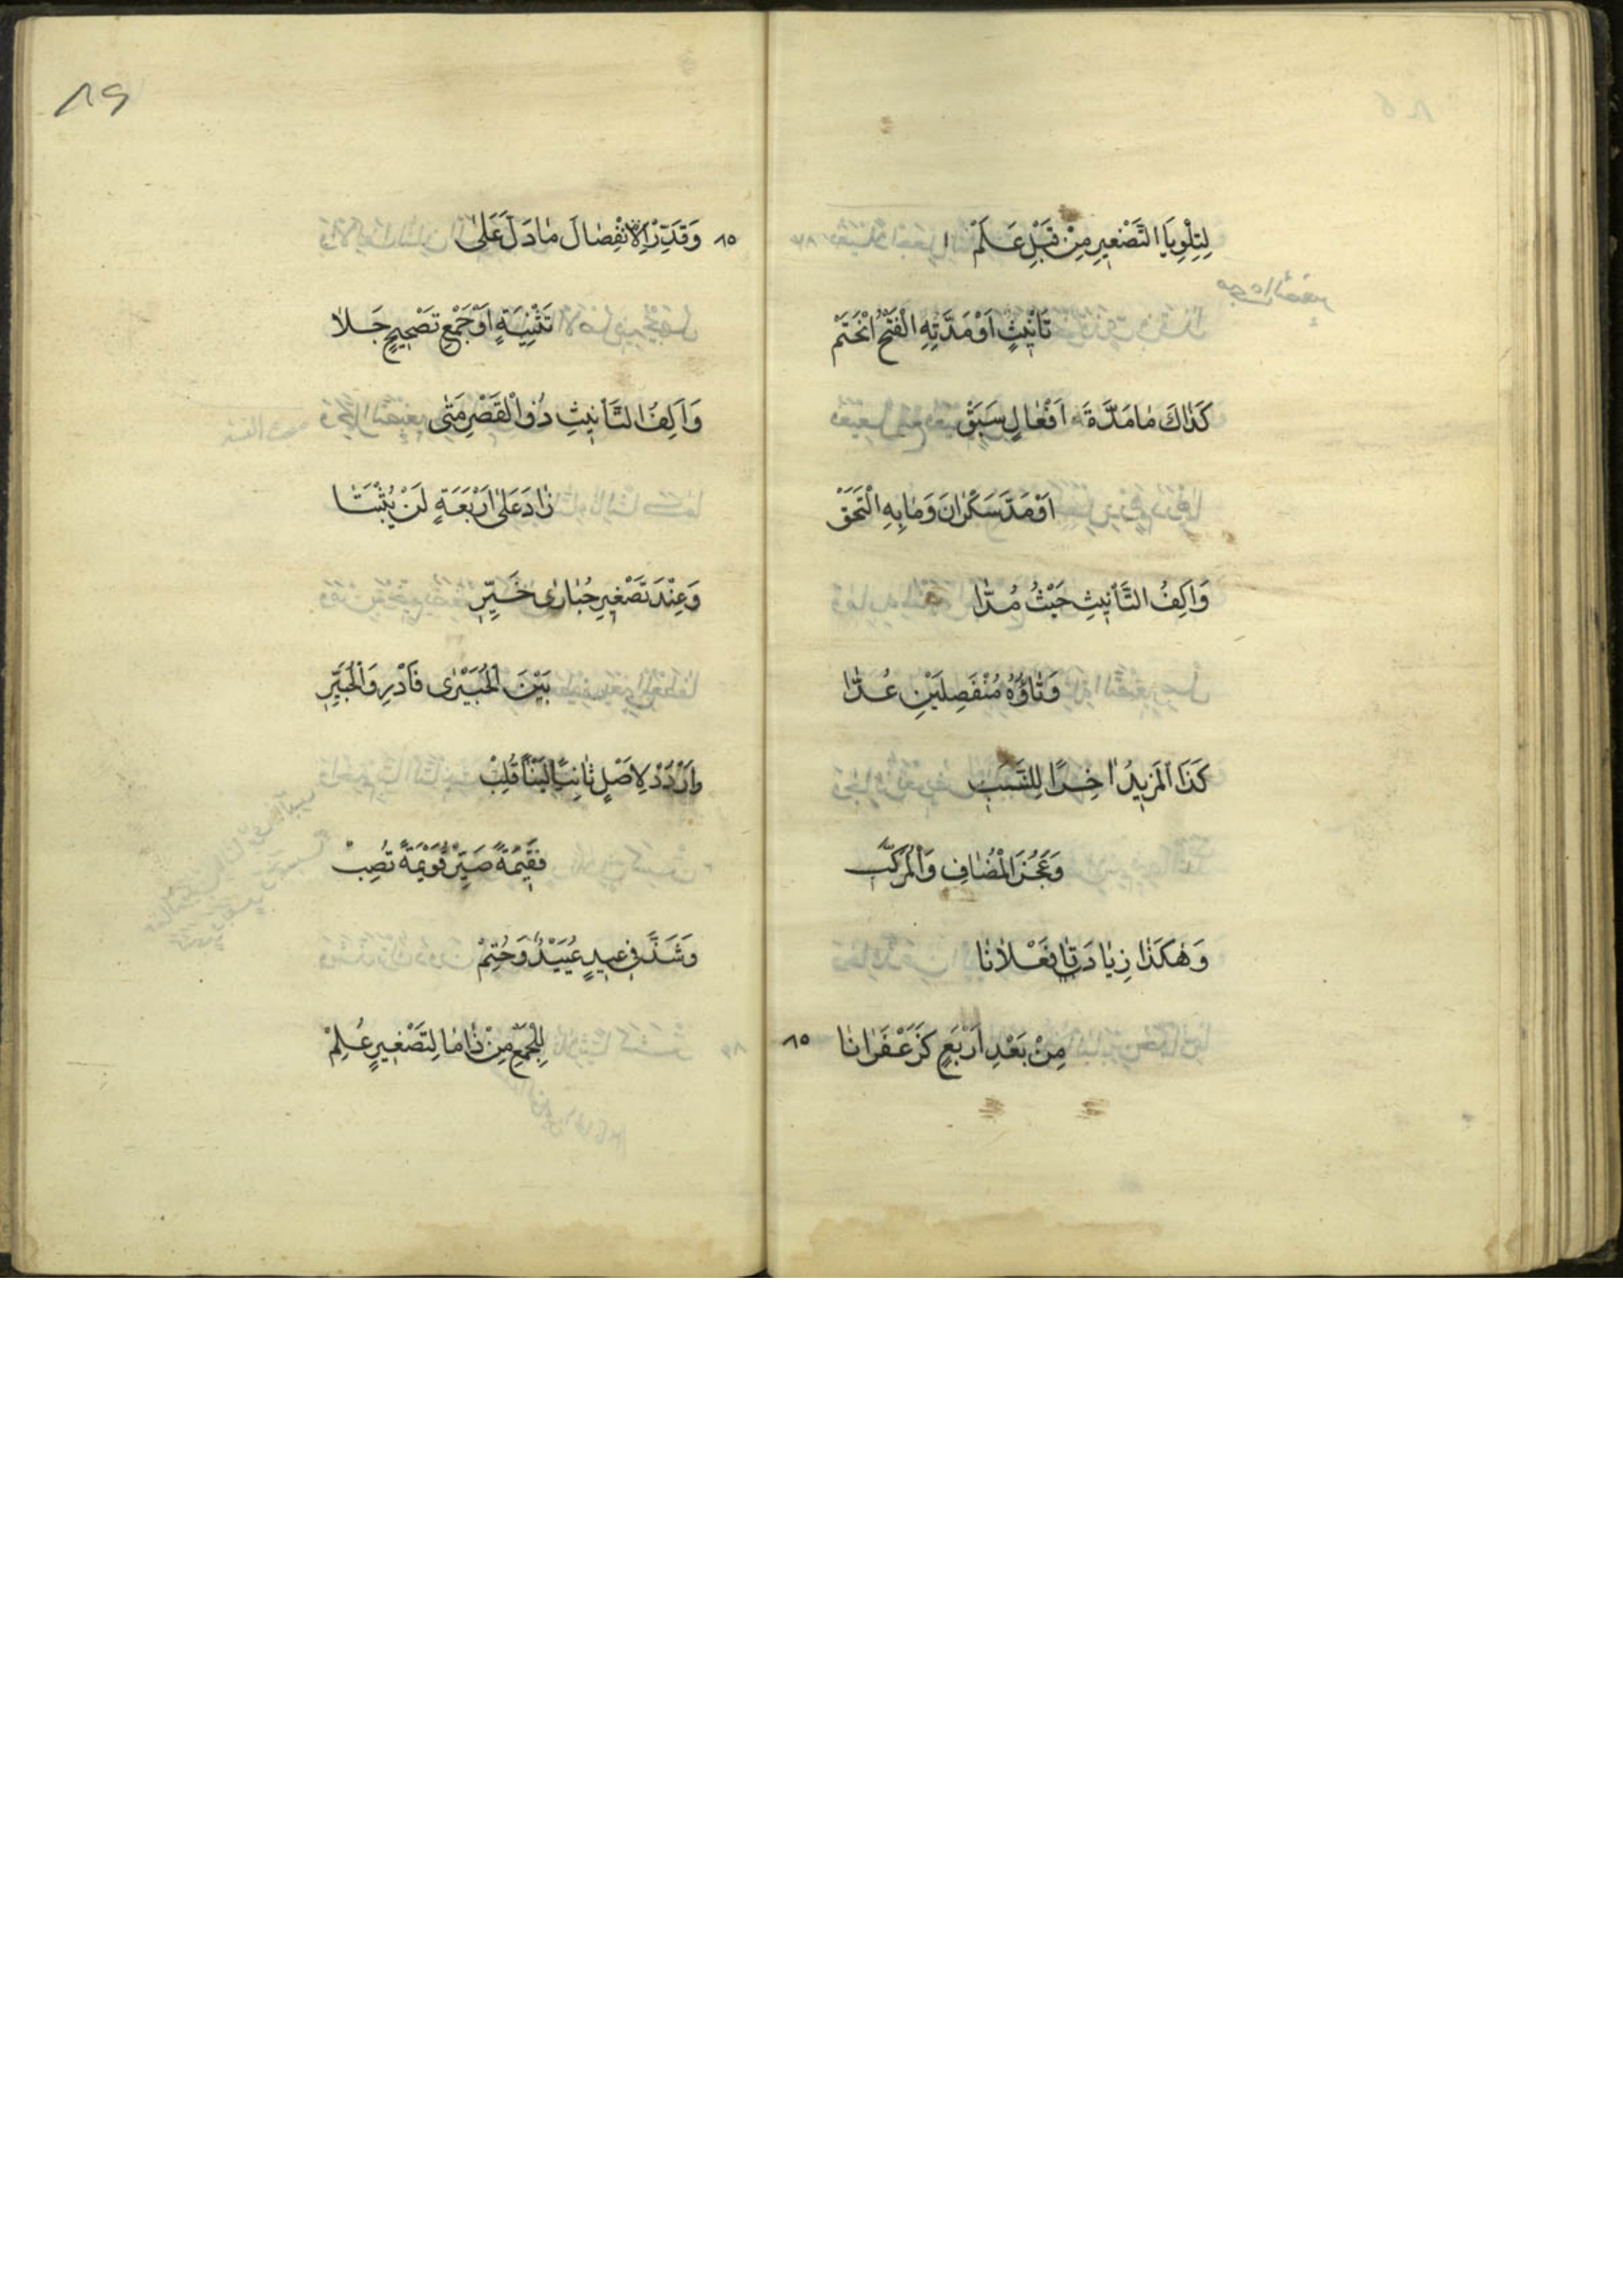 لِتِلْوِيَا التَّصْغِيرِ مِنْ قَبْلِ عَلَمْ
تَأْنِيثٍ اَوْ مَدَّتِهِ الْفَتْحُ انْحَتَمْ
كَذٰاكَ مٰا مَدَّةَ اَفْعٰالٍ سَبَقْ
اَوْ مَدَّ سَكْرٰانَ وَمٰا بِهِ الْتَحَقْ
وَاَلِفُ التَّأْنِيثِ حَيْثُ مُدّٰا
وَتٰاؤُهُ مُنْفَصِلَيْنِ عُدّٰا
كَذَا الْمَزِيدُ اٰخِرًا لِلنَّسَبِ
وَعَجُزُ الْمُضٰافِ وَالْمُرَكَّبِ
وَهٰكَذٰا زِيٰادَتٰا فَعْلٰانٰا
مِنْ بَعْدِ اَرْبَعٍ كَزَعْفَرٰانٰا
٨٥
٨٩
٨٥ وَقَدِّرِ الْاِنْفِصٰالَ مٰا دَلَّ عَلىٰ
تَثْنِيَةٍ اَوْ جَمْعِ تَصْحِيحٍ جَلٰا
وَاَلِفُ التَّأْنِيثِ ذُو الْقَصْرِ مَتىٰ
زٰادَ عَلىٰ اَرْبَعَةٍ لَنْ يُثْبَتٰا
وَعِنْدَ تَصْغِيرِ حُبٰارىٰ خَيِّرِ
بَيْنَ الْحُبَيْرىٰ فَادْرِ وَالْحُبَيِّرِ
وَارْدُدْ لِاَصْلٍ ثٰانِيًا لَيْنًا قُلِبْ
فَقِيْمَةً صَيِّرْ قُوَيْمَةً تُصِبْ
وَشَذَّ فِي عِيدٍ عُيَيْدٌ وَحُتِمْ
لِلْجَمْعِ مِنْ ذٰا مٰا لِتَصْغِيرٍ عُلِمْ